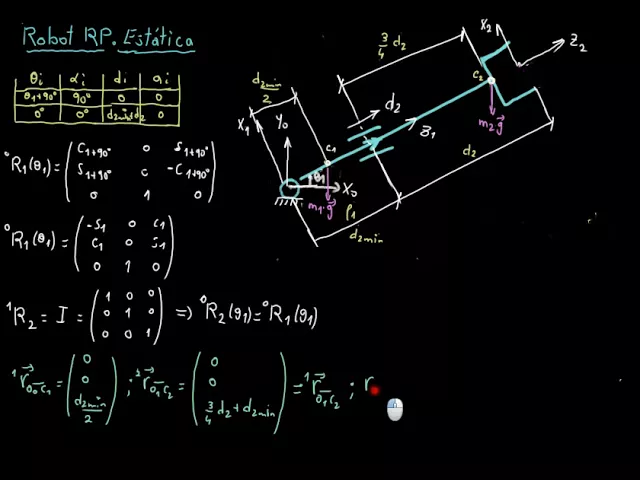 Robot RP. Estática
θi αi di ai
θ1+90° 90° 0 0
0° 0° d2min+d2 0
⁰R1(θ1) = ( C1+90° 0 S1+90°
S1+90° 0 -C1+90°
0 1 0 )
⁰R1(θ1) = ( -S1 0 C1
C1 0 S1
0 1 0 )
¹R2 = I = ( 1 0 0
0 1 0
0 0 1 ) ⇒ ⁰R2(q1) = ⁰R1(q1)
¹r⃗O0C1 = ( 0
0
d2min/2 ) ; ²r⃗O1C2 = ( 0
0
3/4 d2 + d2min ) = ¹r⃗O1C2 ; r
X2
Z2
3/4 d2
C2
m2g⃗
d2min/2
d2
X1
Y0
C1
Z1
d2
θ1
X0
m1·g⃗
ρ1
d2min